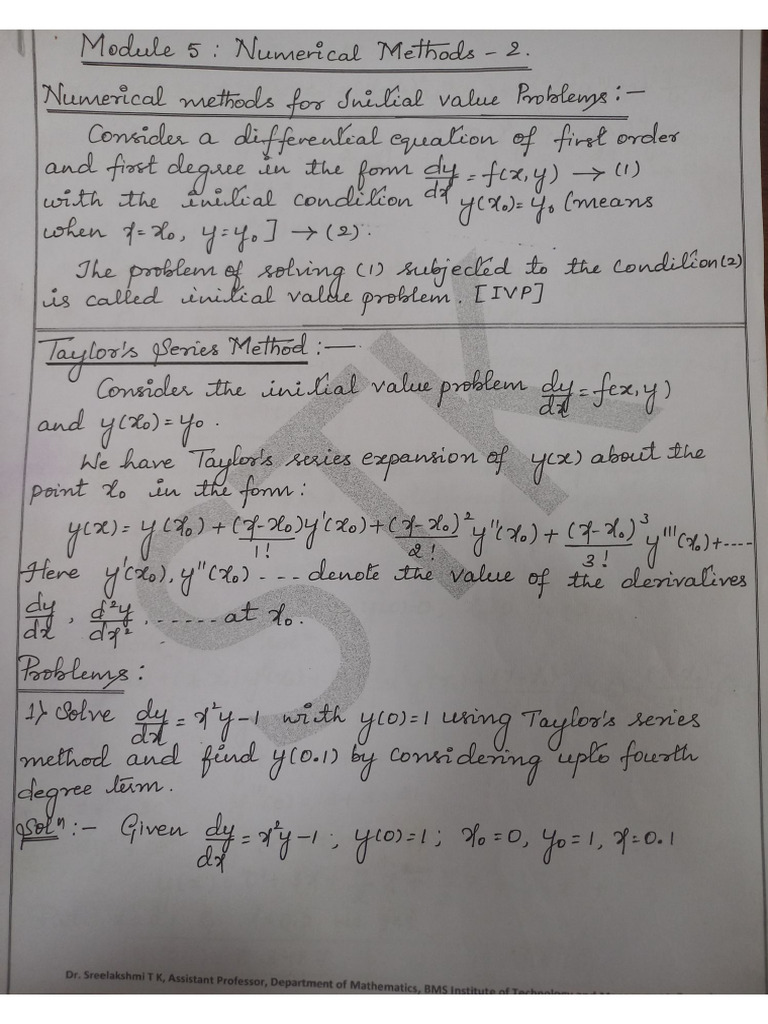 Module 5 : Numerical Methods - 2.
Numerical methods for Initial value Problems :-
Consider a differential equation of first order
and first degree in the form dy/dx = f(x,y) → (1)
with the initial condition y(x₀)= y₀ (means
when x= x₀, y=y₀ ] → (2).
The problem of solving (1) subjected to the condition (2)
is called initial value problem. [IVP]
Taylor's Series Method :-
Consider the initial value problem dy/dx = f(x,y)
and y(x₀)= y₀.
We have Taylor's series expansion of y(x) about the
point x₀ in the form :
y(x) = y(x₀) + (x-x₀)/1! y'(x₀) + (x-x₀)²/2! y''(x₀) + (x-x₀)³/3! y'''(x₀)+----
Here y'(x₀), y''(x₀) --- denote the value of the derivatives
dy/dx , d²y/dx² ....... at x₀.
Problems :
1) Solve dy/dx = x²y-1 with y(0)=1 using Taylor's series
method and find y(0.1) by considering upto fourth
degree term.
Solⁿ :- Given dy/dx = x²y-1 ; y(0)=1; x₀=0, y₀=1, x=0.1
STK
Dr. Sreelakshmi T K, Assistant Professor, Department of Mathematics, BMS Institute of Technology and